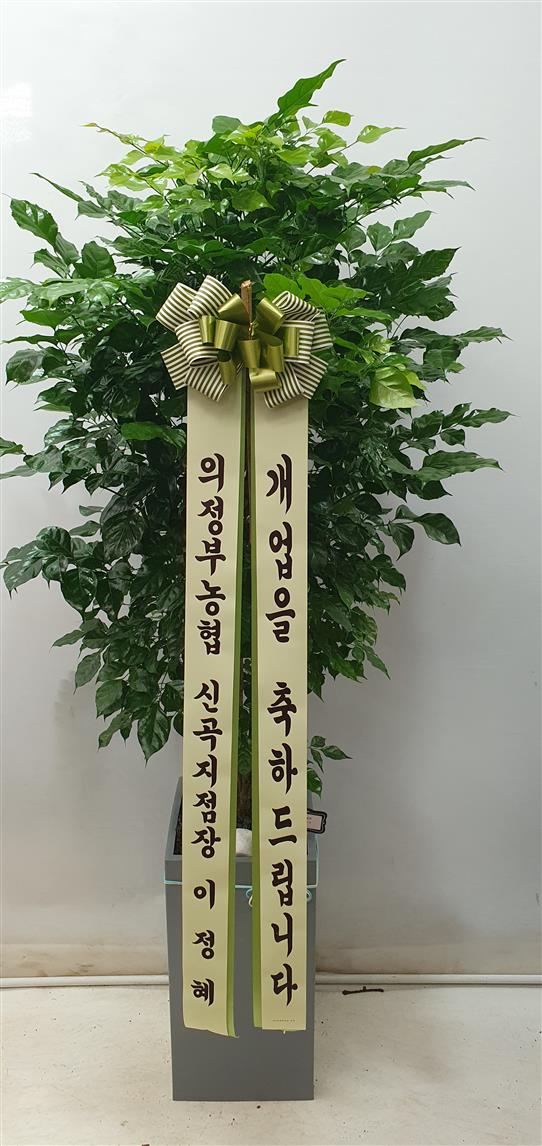 개업을 축하드립니다
의정부농협 신곡지점장 이정혜